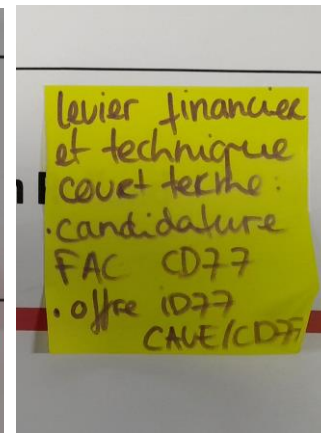 levier financier
et technique
court terme :
. candidature
FAC CD77
. offre ID77
CAUE/CD77